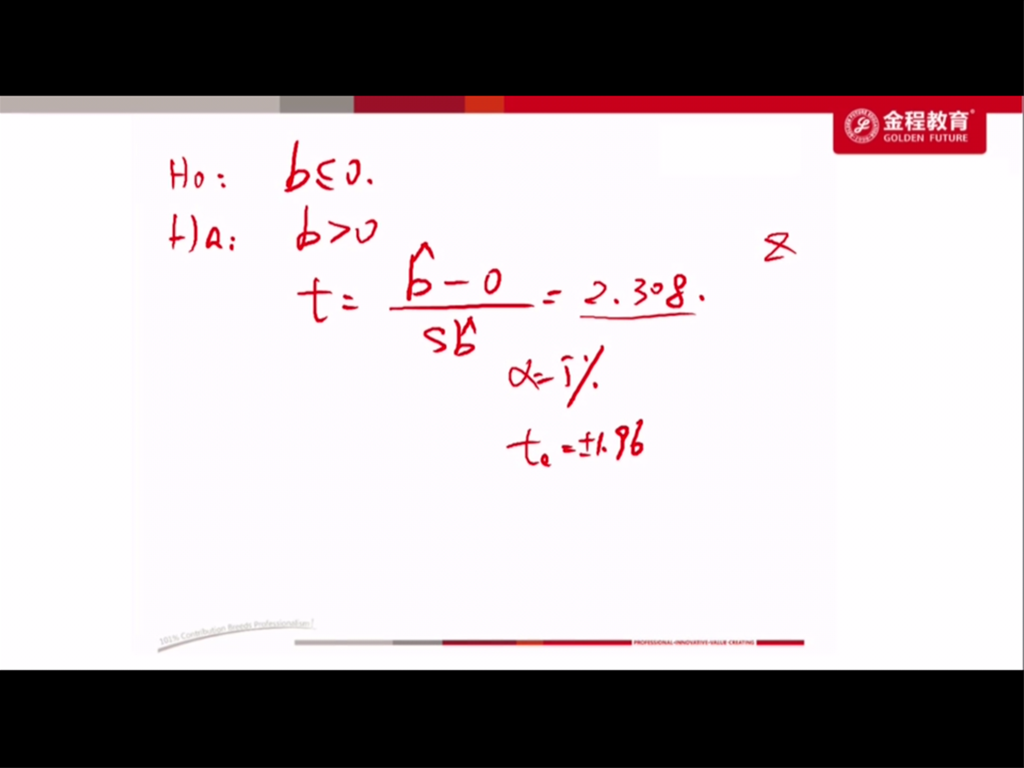 金程教育
GOLDEN FUTURE
H0: b≤0.
HA: b>0
t = (b̂ - 0) / Sb̂ = 2.308.
α=5%
tα = ±1.96
101% Contribution Breeds Professionalism!
PROFESSIONAL·INNOVATIVE·VALUE CREATING